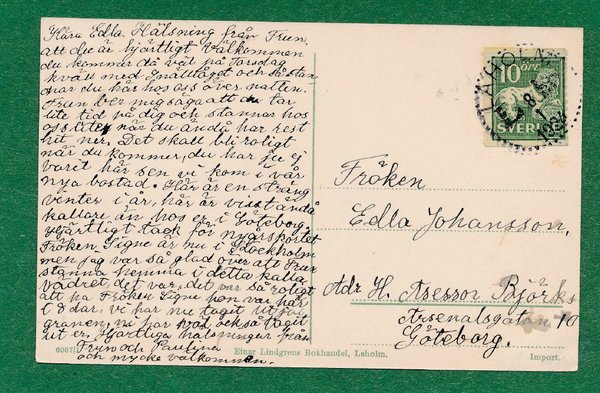 Kära Edla Hälsning från Frun,
att du är hjärtligt Välkommen
du kommer då väl på Torsdag
kväll med Snälltåget och så stan-
nar du här hos oss över natten.
Frun ber mig säga att du tar
lite tid på dig och stannar hos
oss litet när du ändå har rest
hit ner. Det skall bli roligt
när du kommer, du har ju ej
varit här sen vi kom i vår
nya bostad. Här är en sträng
vinter i år, här är visst ändå
kallare än hos er i Göteborg.
Hjärtligt tack för nyårskortet
Fröken Signe är nu i Stockholm
men jag var så glad över att Frun
stanna hemma i detta kalla
vädret det var, det var så roligt
att ha Fröken Signe hon var här
i 8 dar. vi har nu tagit ut jul
granen, ni har väl också tagit
ut er. Hjärtliga hälsningar från
Frun och Paulina
och mycke välkommen.
10 ÖRE
SVERIGE
LAHOLM
1924
Fröken
Edla Johansson,
Adr H. Assessor Björks
Arsenalsgatan 10
Göteborg.
6007
Einar Lindgrens Bokhandel, Laholm.
Import.